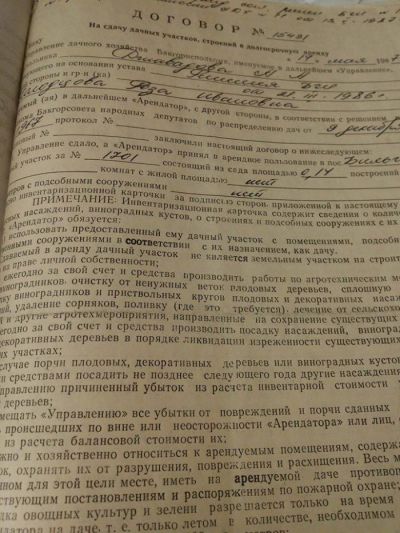 ДОГОВОР № 15421
На сдачу дачных участков, строений в долгосрочную аренду
14 мая 1987
равление дачного хозяйства Бакгорисполкома, именуемое в дальнейшем «Управление»,
ующего на основании устава
ороны и гр-н (ка)
Иза Ивановна
уемый (ая) в дальнейшем «Арендатор», с другой стороны, в соответствии с решением
Бакгорсовета народных депутатов по распределению дач от 9 декабря
протокол №
заключили настоящий договор о нижеследующем:
Управление сдало, а «Арендатор» принял в арендное пользование в пос.
ый участок за № 1201 состоящий из сада площадью 0,14 построений
комнат с жилой площадью нет
ров с подсобными сооружениями нет
но инвентаризационной карточки за подписью сторон приложенной к настоящему
ПРИМЕЧАНИЕ: Инвентаризационная карточка содержит сведения о количе
ых насаждений, виноградных кустов, о строениях и подсобных сооружениях с их
«Арендатор» обязуется:
использовать предоставленный ему дачный участок с помещениями, подсобн
ными сооружениями в соответствии с их назначением, как дачу.
даваемый в аренду дачный участок не является земельным участком на строи
на праве личной собственности;
ежегодно за свой счет и средства производить работы по агротехническим ме
виноградников, очистку от ненужных веток плодовых деревьев, сплошную
ку виноградников и приствольных кругов плодовых и декоративных насаж
ий, удаление сорняков, поливку (где это требуется) лечение от сельскохо
й и другие агротехмероприятия, направленные на сохранение существующих
егодно за свой счет и средства производить посадку насаждений, виноград
декоративных деревьев в порядке ликвидации изреженности существующих
их участках;
случае порчи плодовых, декоративных деревьев или виноградных кустов
и средствами посадить не позднее следующего года другие насаждения
правлению причиненный убыток из расчета инвентарной стоимости
деревьев;
мещать «Управлению» все убытки от повреждений и порчи сданных
ь происшедших по вине или неосторожности «Арендатора» или лиц, с
из расчета балансовой стоимости их;
жно и хозяйственно относиться к арендуемым помещениям, содержа
ок, охранять их от разрушения, повреждения и расхищения. Весь м
нном для этой цели месте, иметь на арендуемой даче против
ствующим постановлениям и распоряжениям по пожарной охране;
дка овощных культур и зелени разрешается только на время
датора на даче, т. е. только летом в количестве, необходимом